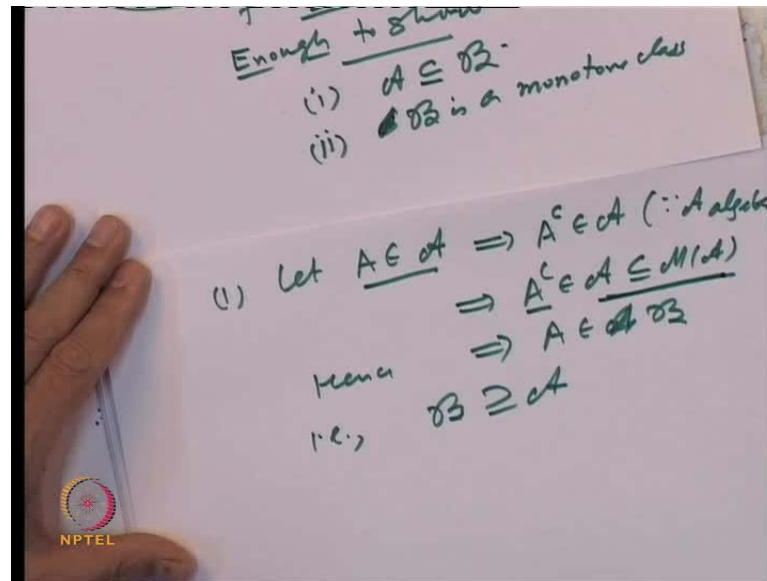 Enough to show
(i) 𝒜 ⊆ ℬ.
(ii) ℬ is a monotone class
(1) Let A ∈ 𝒜 ⟹ Aᶜ ∈ 𝒜 (∵ 𝒜 algebr
⟹ Aᶜ ∈ 𝒜 ⊆ ℳ(𝒜)
⟹ A ∈ ℬ
Hence
i.e., ℬ ⊇ 𝒜
NPTEL